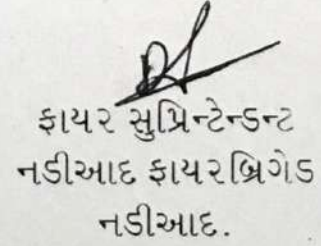 ફાયર સુપ્રિન્ટેન્ડન્ટ
નડીઆદ ફાયરબ્રિગેડ
નડીઆદ.